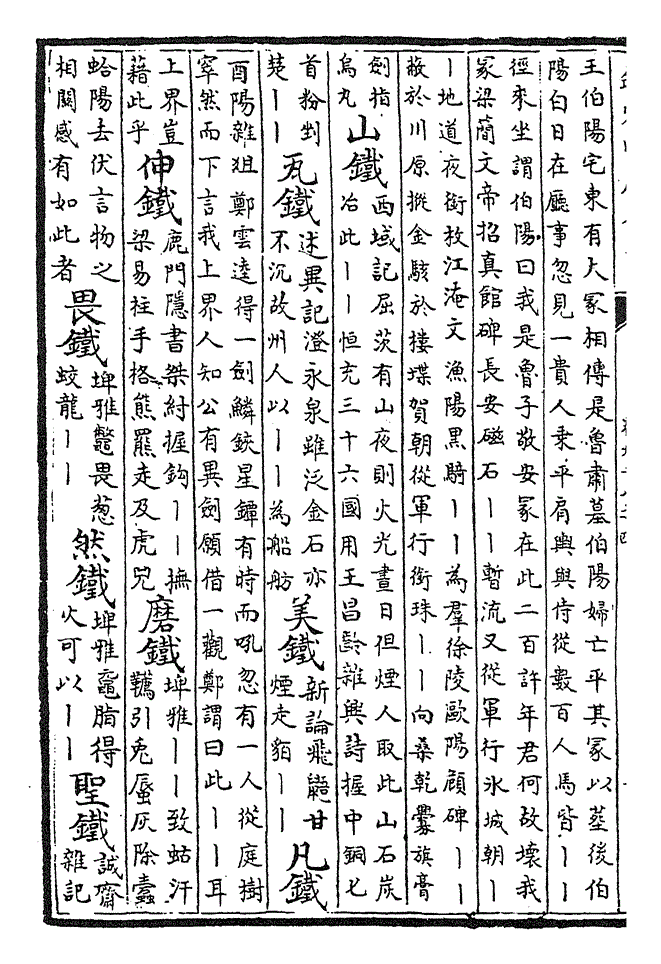 王伯陽宅東有大冢相傳是魯肅墓伯陽婦亡平其冢以塟後伯
陽白日在廳事忽見一貴人乘平肩輿與侍從數百人馬皆丨丨
徑來坐謂伯陽曰我是魯子敬安冢在此二百許年君何故壞我
冢梁簡文帝招真館碑長安磁石丨丨暫流又從軍行氷城朝丨
丨地道夜銜枚江淹文漁陽黑騎丨丨為羣徐陵歐陽頠碑丨丨
蔽於川原摐金駭於樓堞賀朝從軍行銜珠丨丨向桑乾釁旗膏
劍指
烏丸
山鐵
西域記屈茨有山夜則火光晝日但煙人取此山石炭
冶此丨丨恒充三十六國用王昌齡雜興詩握中銅匕
首粉剉
楚丨丨
瓦鐵
述異記澄氷泉雖泛金石亦
不沉故州人以丨丨為船舫
美鐵
新論飛鼯甘
煙走貊丨丨
凡鐵
酉陽雜俎鄭雲逵得一劍鱗鋏星鐔有時而吼忽有一人從庭樹
窣然而下言我上界人知公有異劍願借一觀鄭謂曰此丨丨耳
上界豈
藉此乎
伸鐵
鹿門隱書桀紂握鈎丨丨撫
梁易柱手格熊羆走及虎兕
磨鐵
埤雅丨丨致蛄汗
韉引兎蜃灰除蠹
蛤陽去伏言物之
相關感有如此者
畏鐵
埤雅鼈畏葱
蛟龍丨丨
然鐵
埤雅黿脂得
火可以丨丨
聖鐵
誠齋
雜記